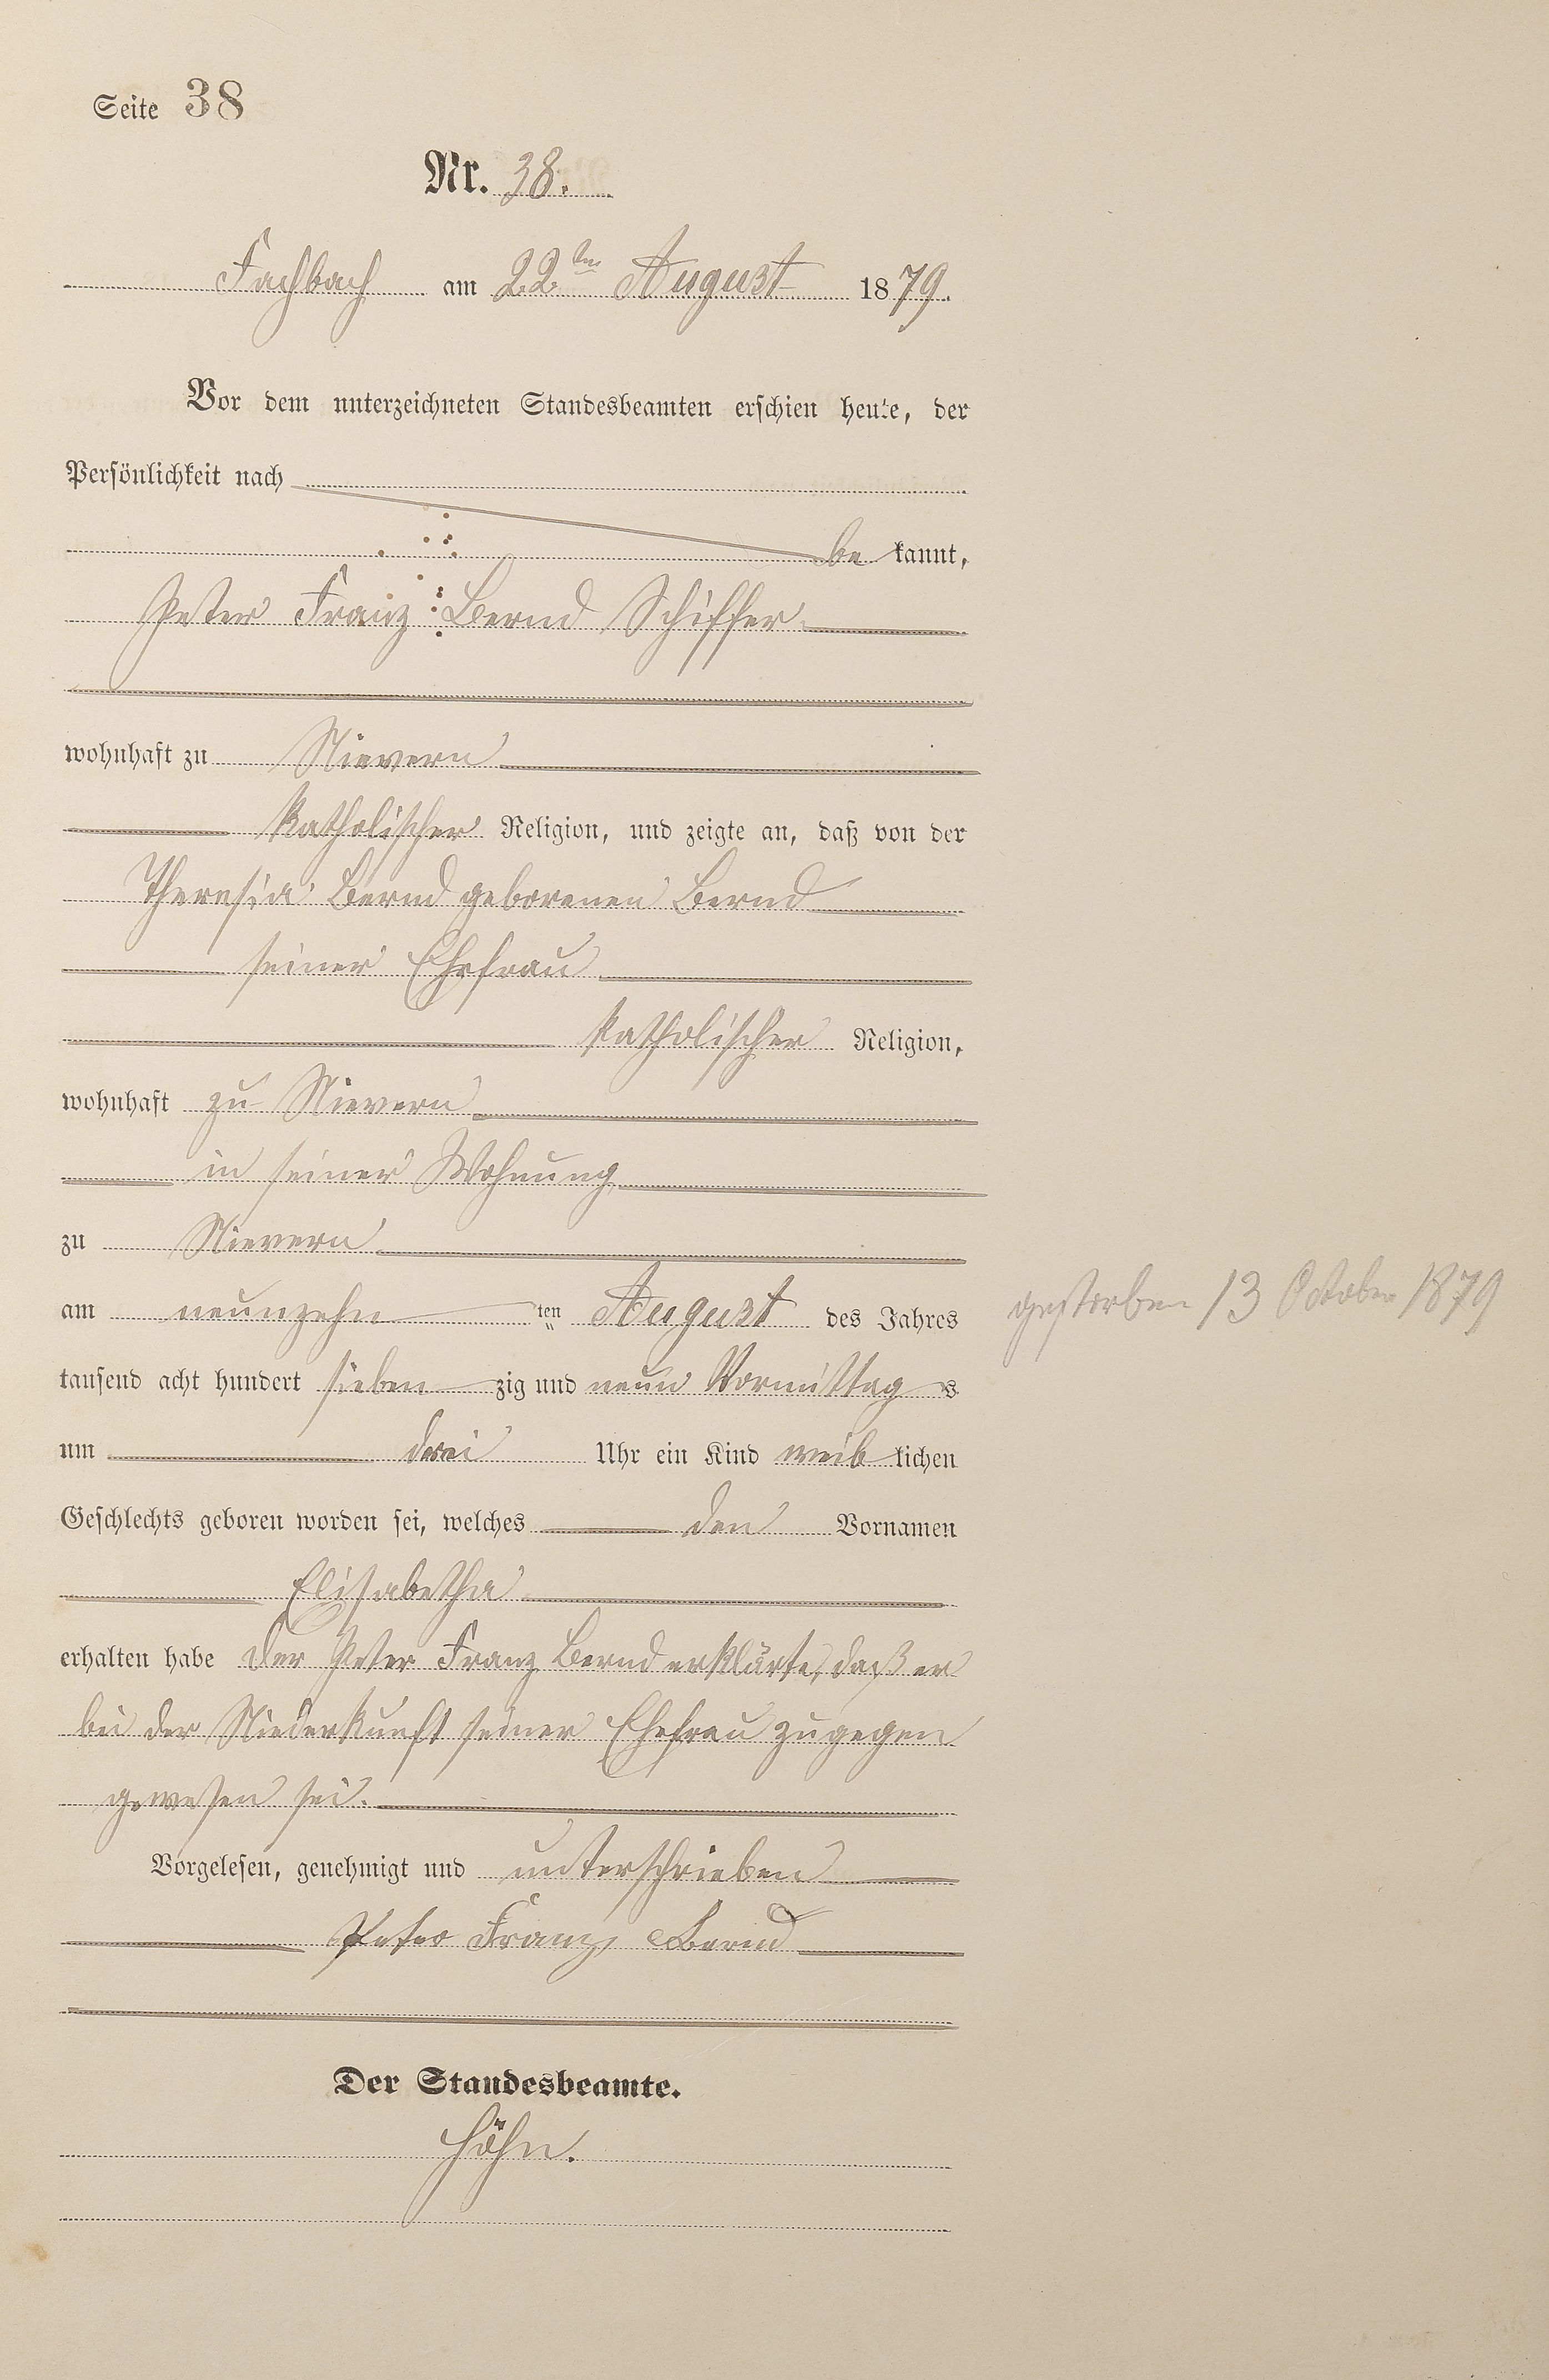 Seite 38
Nr. 38.
Fachbach am 22ten August 1879.
Vor dem unterzeichneten Standesbeamten erschien heute, der
Persönlichkeit nach
be kannt,
Peter Franz Bernd Schiffer
wohnhaft zu Nievern
katholischer Religion, und zeigte an, daß von der
Theresia Bernd geborenen Bernd
seiner Ehefrau
katholischer Religion,
wohnhaft zu Nievern
in seiner Wohnung
zu Nievern
am neunzehn ten August des Jahres
gestorben 13 October 1879
tausend acht hundert sieben zig und neun Vormittag s
um drei Uhr ein Kind weib lichen
Geschlechts geboren worden sei, welches den Vornamen
Elisabetha
erhalten habe der Peter Franz Bernd erklärte, daß er
bei der Niederkunft seiner Ehefrau zugegen
gewesen sei.
Vorgelesen, genehmigt und unterschrieben
Peter Franz Bernd
Der Standesbeamte.
Höhn.